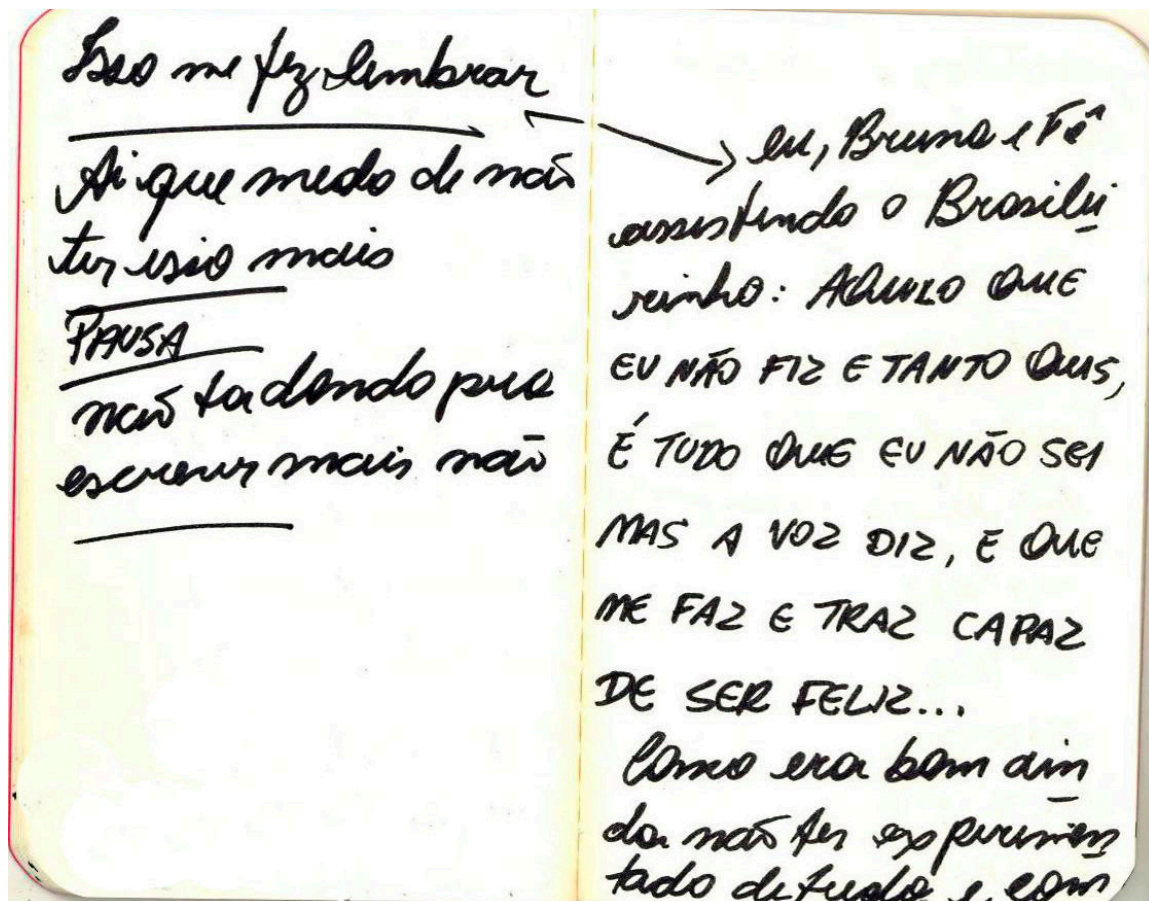 Isso me fez lembrar
Ai que medo de não
ter isso mais
PAUSA
não ta dando pra
escrever mais não
eu, Bruna e Fê
assistindo o Brasilei
rinho: AQUILO QUE
EU NÃO FIZ E TANTO QUIS,
É TUDO QUE EU NÃO SEI
MAS A VOZ DIZ, E QUE
ME FAZ E TRAZ CAPAZ
DE SER FELIZ...
Como era bom ain
da não ter experimen
tado de tudo e com